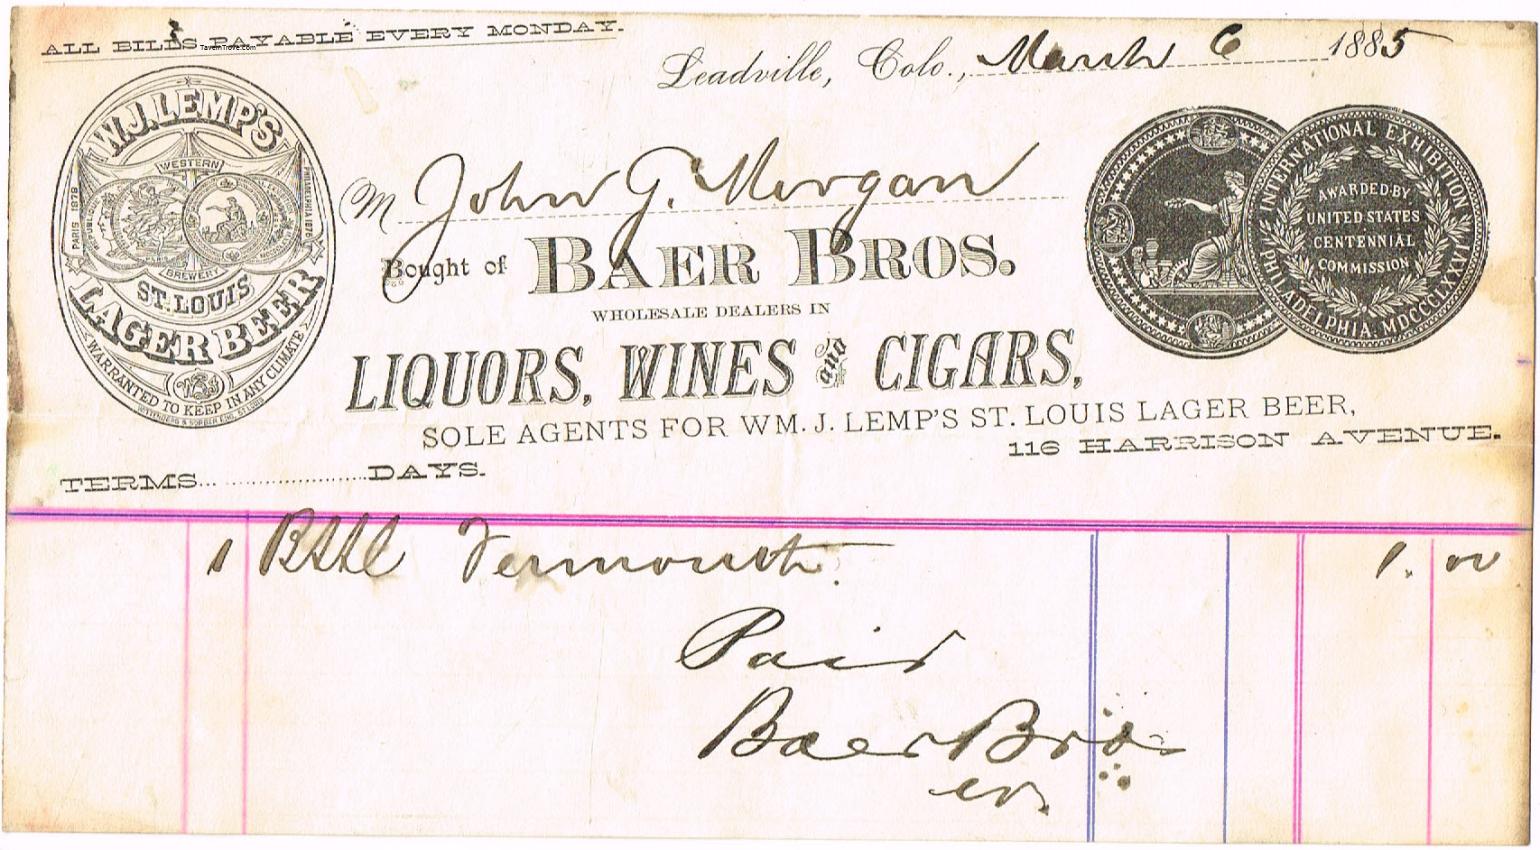 ALL BILLS PAYABLE EVERY MONDAY.
TavernTrove.com
Leadville, Colo., March 6 1885
W.J. LEMP'S
WESTERN
BREWERY
PARIS 1878
PHILADELPHIA 1876
ST. LOUIS
LAGER BEER
WARRANTED TO KEEP IN ANY CLIMATE
M John G. Morgan
Bought of BAER BROS.
WHOLESALE DEALERS IN
LIQUORS, WINES and CIGARS,
SOLE AGENTS FOR WM. J. LEMP'S ST. LOUIS LAGER BEER,
116 HARRISON AVENUE.
INTERNATIONAL EXHIBITION
PHILADELPHIA. MDCCCLXXVI
AWARDED BY
UNITED STATES
CENTENNIAL
COMMISSION
TERMS DAYS.
1 Bttl Vermouth. 1.00
Paid
Baer Bros